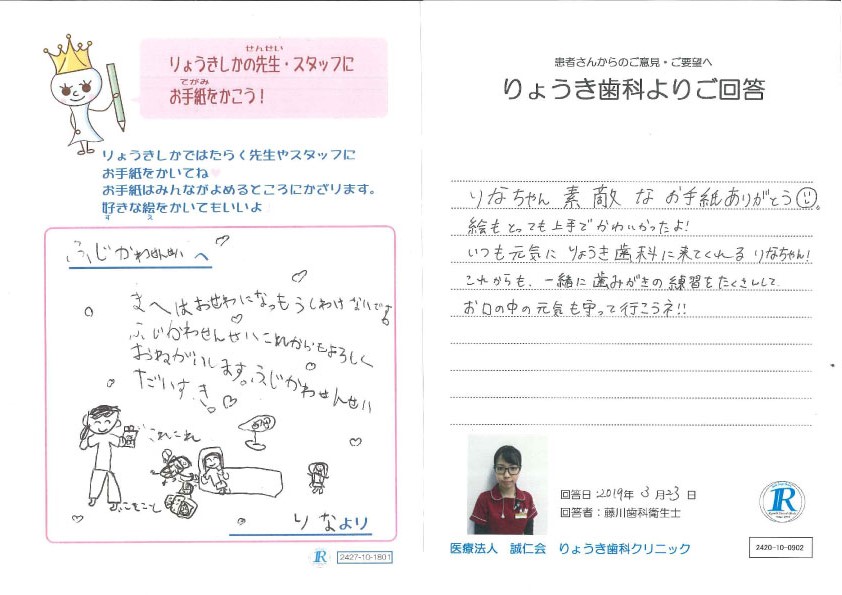 りょうきしかの先生・スタッフに
せんせい
お手紙をかこう！
てがみ
りょうきしかではたらく先生やスタッフに
お手紙をかいてね♥
お手紙はみんながよめるところにかざります。
好きな絵をかいてもいいよ
す え
ふじかわせんせい へ
まへはおせわになっもうしわけないです
ふじかわせんせいこれからもよろしく
おねがいします。ふじかわせんせい
だいすき。
これこれ
りなより
R
2427-10-1801
患者さんからのご意見・ご要望へ
りょうき歯科よりご回答
りなちゃん 素敵な お手紙ありがとう
絵もとっても上手でかわいかったよ！
いつも元気に りょうき歯科に来てくれる りなちゃん！
これからも、一緒に歯みがきの練習をたくさんして
お口の中の元気も守って行こうネ!!
回答日 2019年 3月23日
回答者：藤川歯科衛生士
R
医療法人 誠仁会 りょうき歯科クリニック
2420-10-0902